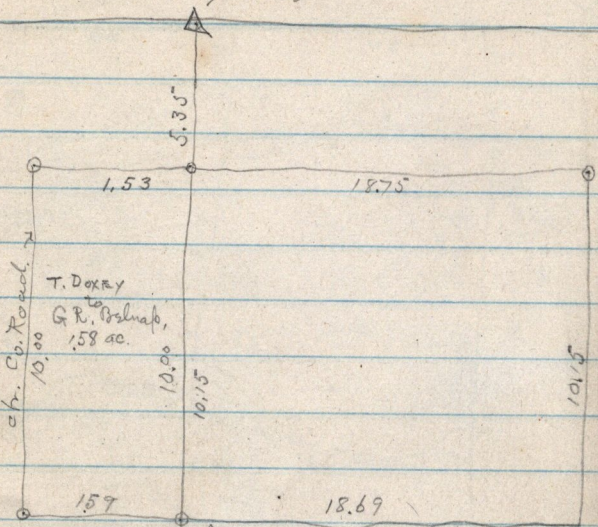 5.35
1.53
18.75
Co. Road
10.00
T. Doxey
to
G R. Belnap,
1.58 ac.
10.00
10.15
10.15
1.59
18.69